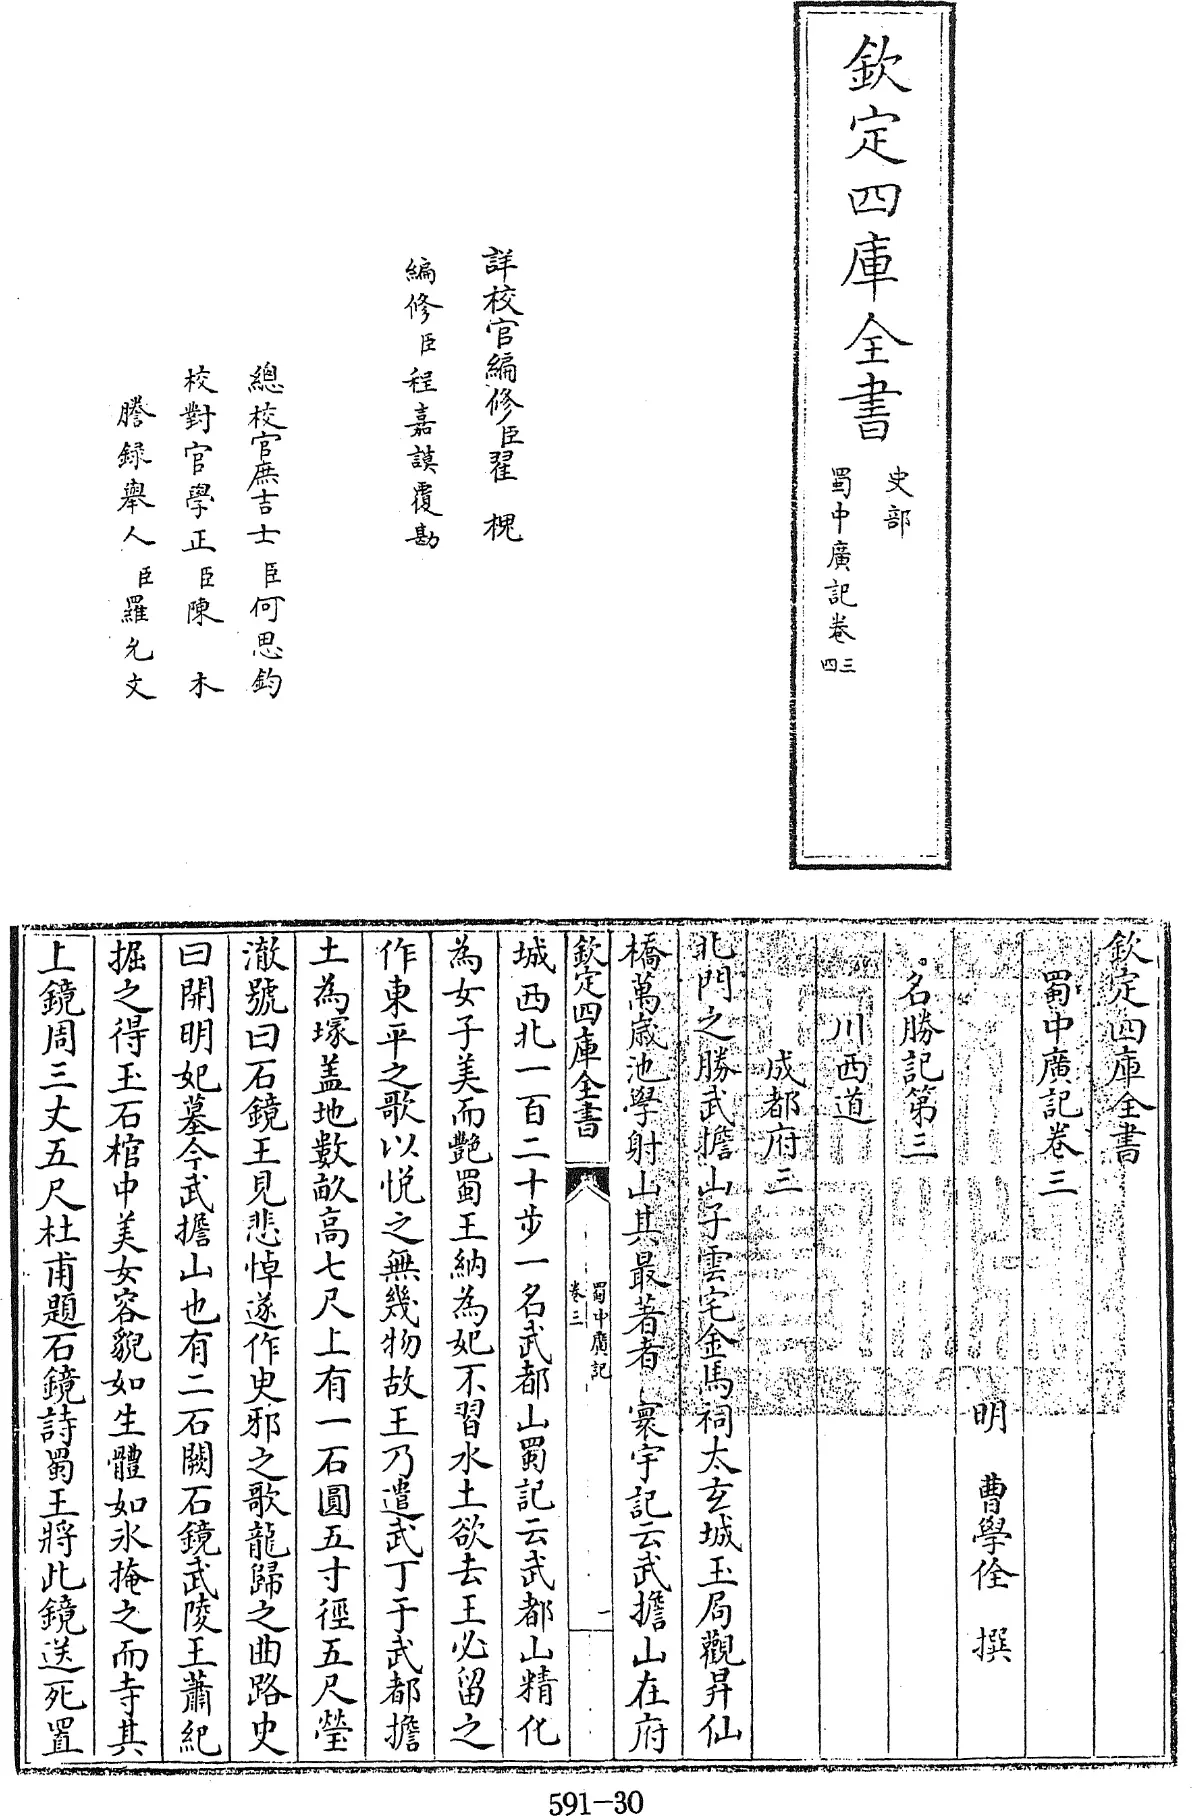 欽定四庫全書
史部
蜀中廣記卷三四
詳校官編修臣翟槐
編修臣程嘉謨覆勘
總校官庶吉士臣何思鈞
校對官學正臣陳木
謄録舉人臣羅允文
欽定四庫全書
蜀中廣記卷三
明 曹學佺 撰
名勝記第三
川西道
成都府三
北門之勝武擔山子雲宅金馬祠太玄城玉局觀昇仙
橋萬歲池學射山其最著者 寰宇記云武擔山在府
欽定四庫全書
蜀中廣記
卷三
一
城西北一百二十步一名武都山蜀記云武都山精化
為女子美而艷蜀王納為妃不習水土欲去王必留之
作東平之歌以悅之無幾物故王乃遣武丁于武都擔
土為塚盖地數畝高七尺上有一石圓五寸徑五尺瑩
澈號曰石鏡王見悲悼遂作臾邪之歌龍歸之曲路史
曰開明妃墓今武擔山也有二石闕石鏡武陵王蕭紀
掘之得玉石棺中美女容貌如生體如氷掩之而寺其
上鏡周三丈五尺杜甫題石鏡詩蜀王將此鏡送死置
591-30